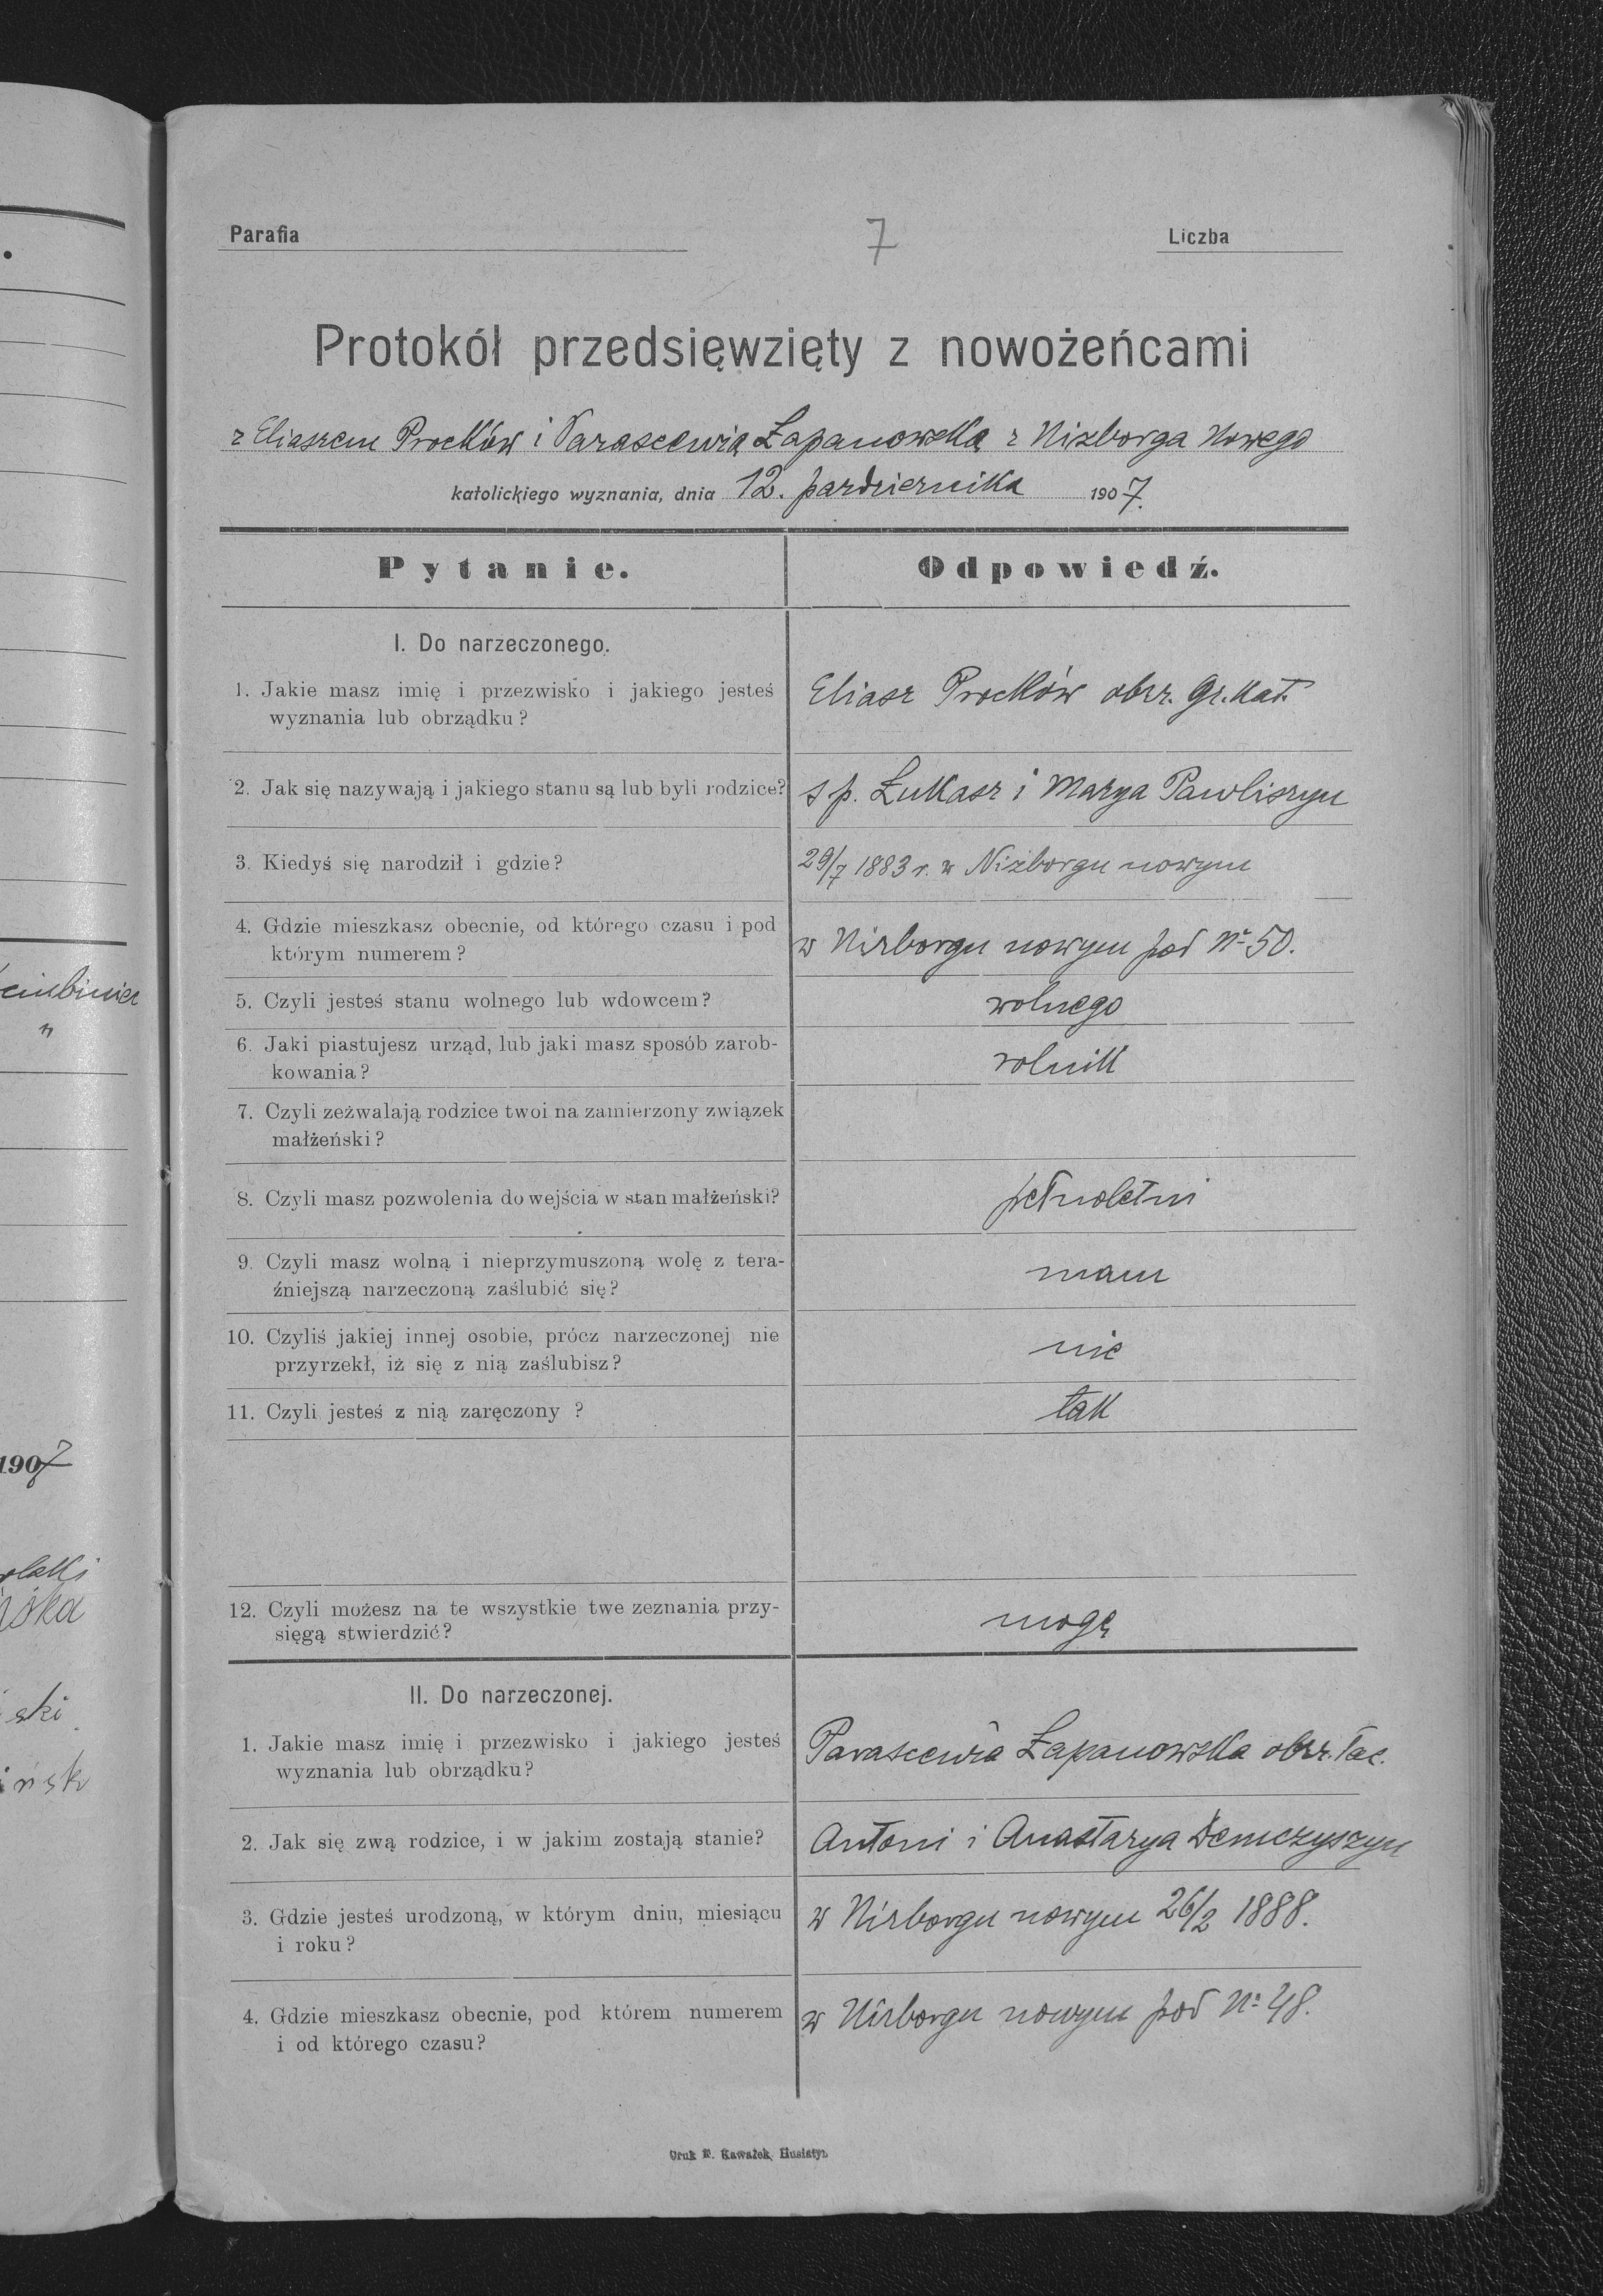 Parafia
7
Liczba
Protokół przedsięwzięty z nowożeńcami
z Eliaszem Procków i Parascewią Łapanowską z Niżborga Nowego
katolickiego wyznania, dnia 12. października 1907.
Pytanie.
Odpowiedź.
I. Do narzeczonego.
1. Jakie masz imię i przezwisko i jakiego jesteś
wyznania lub obrządku?
Eliasz Procków obrz. gr. kat.
2. Jak się nazywają i jakiego stanu są lub byli rodzice?
ś p. Łukasz i Marya Pawliszyn
3. Kiedyś się narodził i gdzie?
29/7 1883 r. w Niżborgu nowym
4. Gdzie mieszkasz obecnie, od którego czasu i pod
którym numerem?
w Niżborgu nowym pod No 50.
5. Czyli jesteś stanu wolnego lub wdowcem?
wolnego
6. Jaki piastujesz urząd, lub jaki masz sposób zarob-
kowania?
rolnik
7. Czyli zeżwalają rodzice twoi na zamierzony związek
małżeński?
8. Czyli masz pozwolenia do wejścia w stan małżeński?
pełnoletni
9. Czyli masz wolną i nieprzymuszoną wolę z tera-
źniejszą narzeczoną zaślubić się?
mam
10. Czyliś jakiej innej osobie, prócz narzeczonej nie
przyrzekł, iż się z nią zaślubisz?
nie
11. Czyli jesteś z nią zaręczony ?
tak
12. Czyli możesz na te wszystkie twe zeznania przy-
sięgą stwierdzić?
mogę
II. Do narzeczonej.
1. Jakie masz imię i przezwisko i jakiego jesteś
wyznania lub obrządku?
Parascewia Łapanowska obrz. łac.
2. Jak się zwą rodzice, i w jakim zostają stanie?
Antoni i Anastazya Demczyszyn
3. Gdzie jesteś urodzoną, w którym dniu, miesiącu
i roku?
w Niżborgu nowym 26/2 1888.
4. Gdzie mieszkasz obecnie, pod którem numerem
i od którego czasu?
w Niżborgu nowym pod No 48.
Druk F. Kawałek, Husiatyn
"
1907
ski